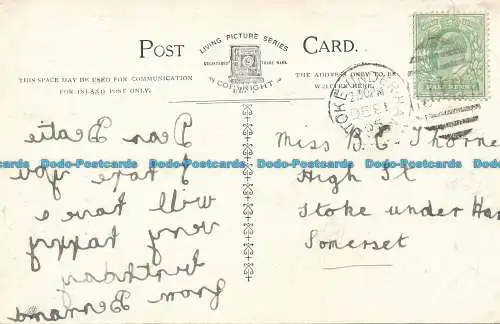 LIVING PICTURE SERIES
REGISTERED TRADE MARK
COPYRIGHT
POST CARD.
THIS SPACE MAY BE USED FOR COMMUNICATION
FOR INLAND POST ONLY.
THE ADDRESS ONLY TO BE
WRITTEN HERE.
Dear Beatie
I hope you
will have a
very happy
birthday
from Bernard
Miss B. E. Thorne
High St
Stoke under Ham
Somerset
Dodo-Postcards Dodo-Postcards Dodo-Postcards Dodo-Postcards Dodo-Postcards